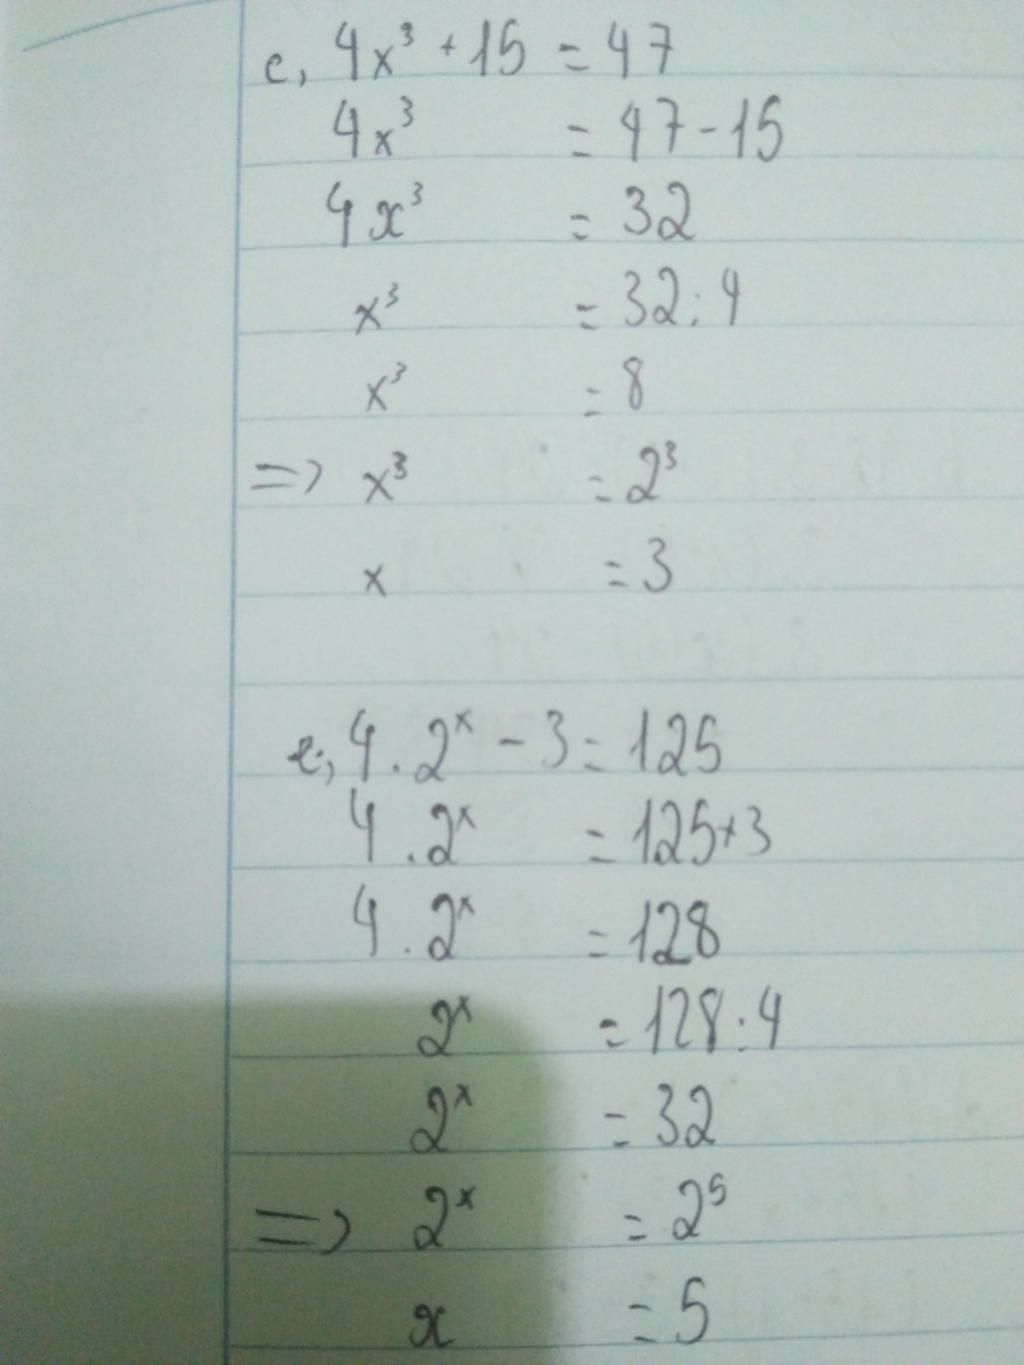 c, 4x³ + 15 = 47
4x³ = 47 - 15
4x³ = 32
x³ = 32 : 4
x³ = 8
=> x³ = 2³
x = 3
e, 4 . 2ˣ - 3 = 125
4 . 2ˣ = 125 + 3
4 . 2ˣ = 128
2ˣ = 128 : 4
2ˣ = 32
=> 2ˣ = 2⁵
x = 5